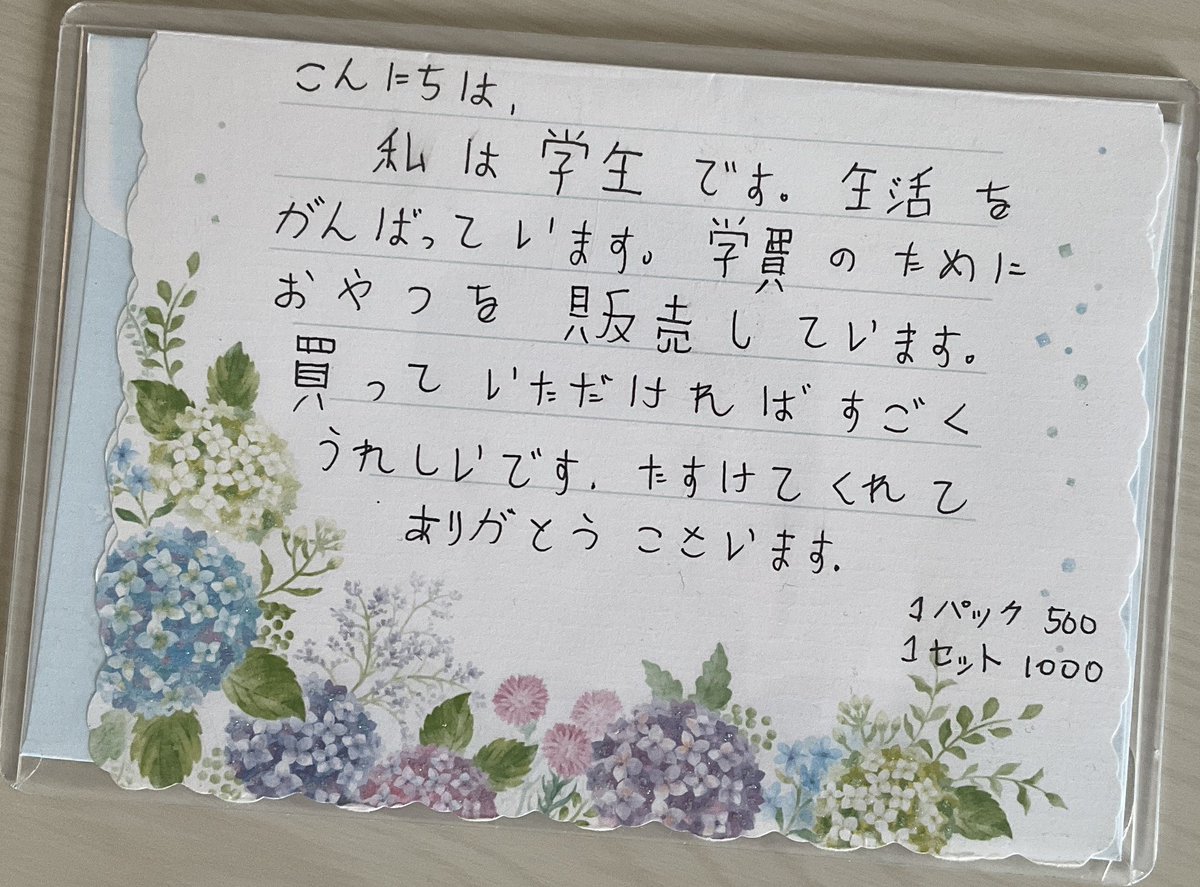 こんにちは,
私は学生です。生活を
がんばっています。学買のために
おやつを販売しています。
買っていただければすごく
うれしいです.たすけてくれて
ありがとうございます.
1パック 500
1セット 1000